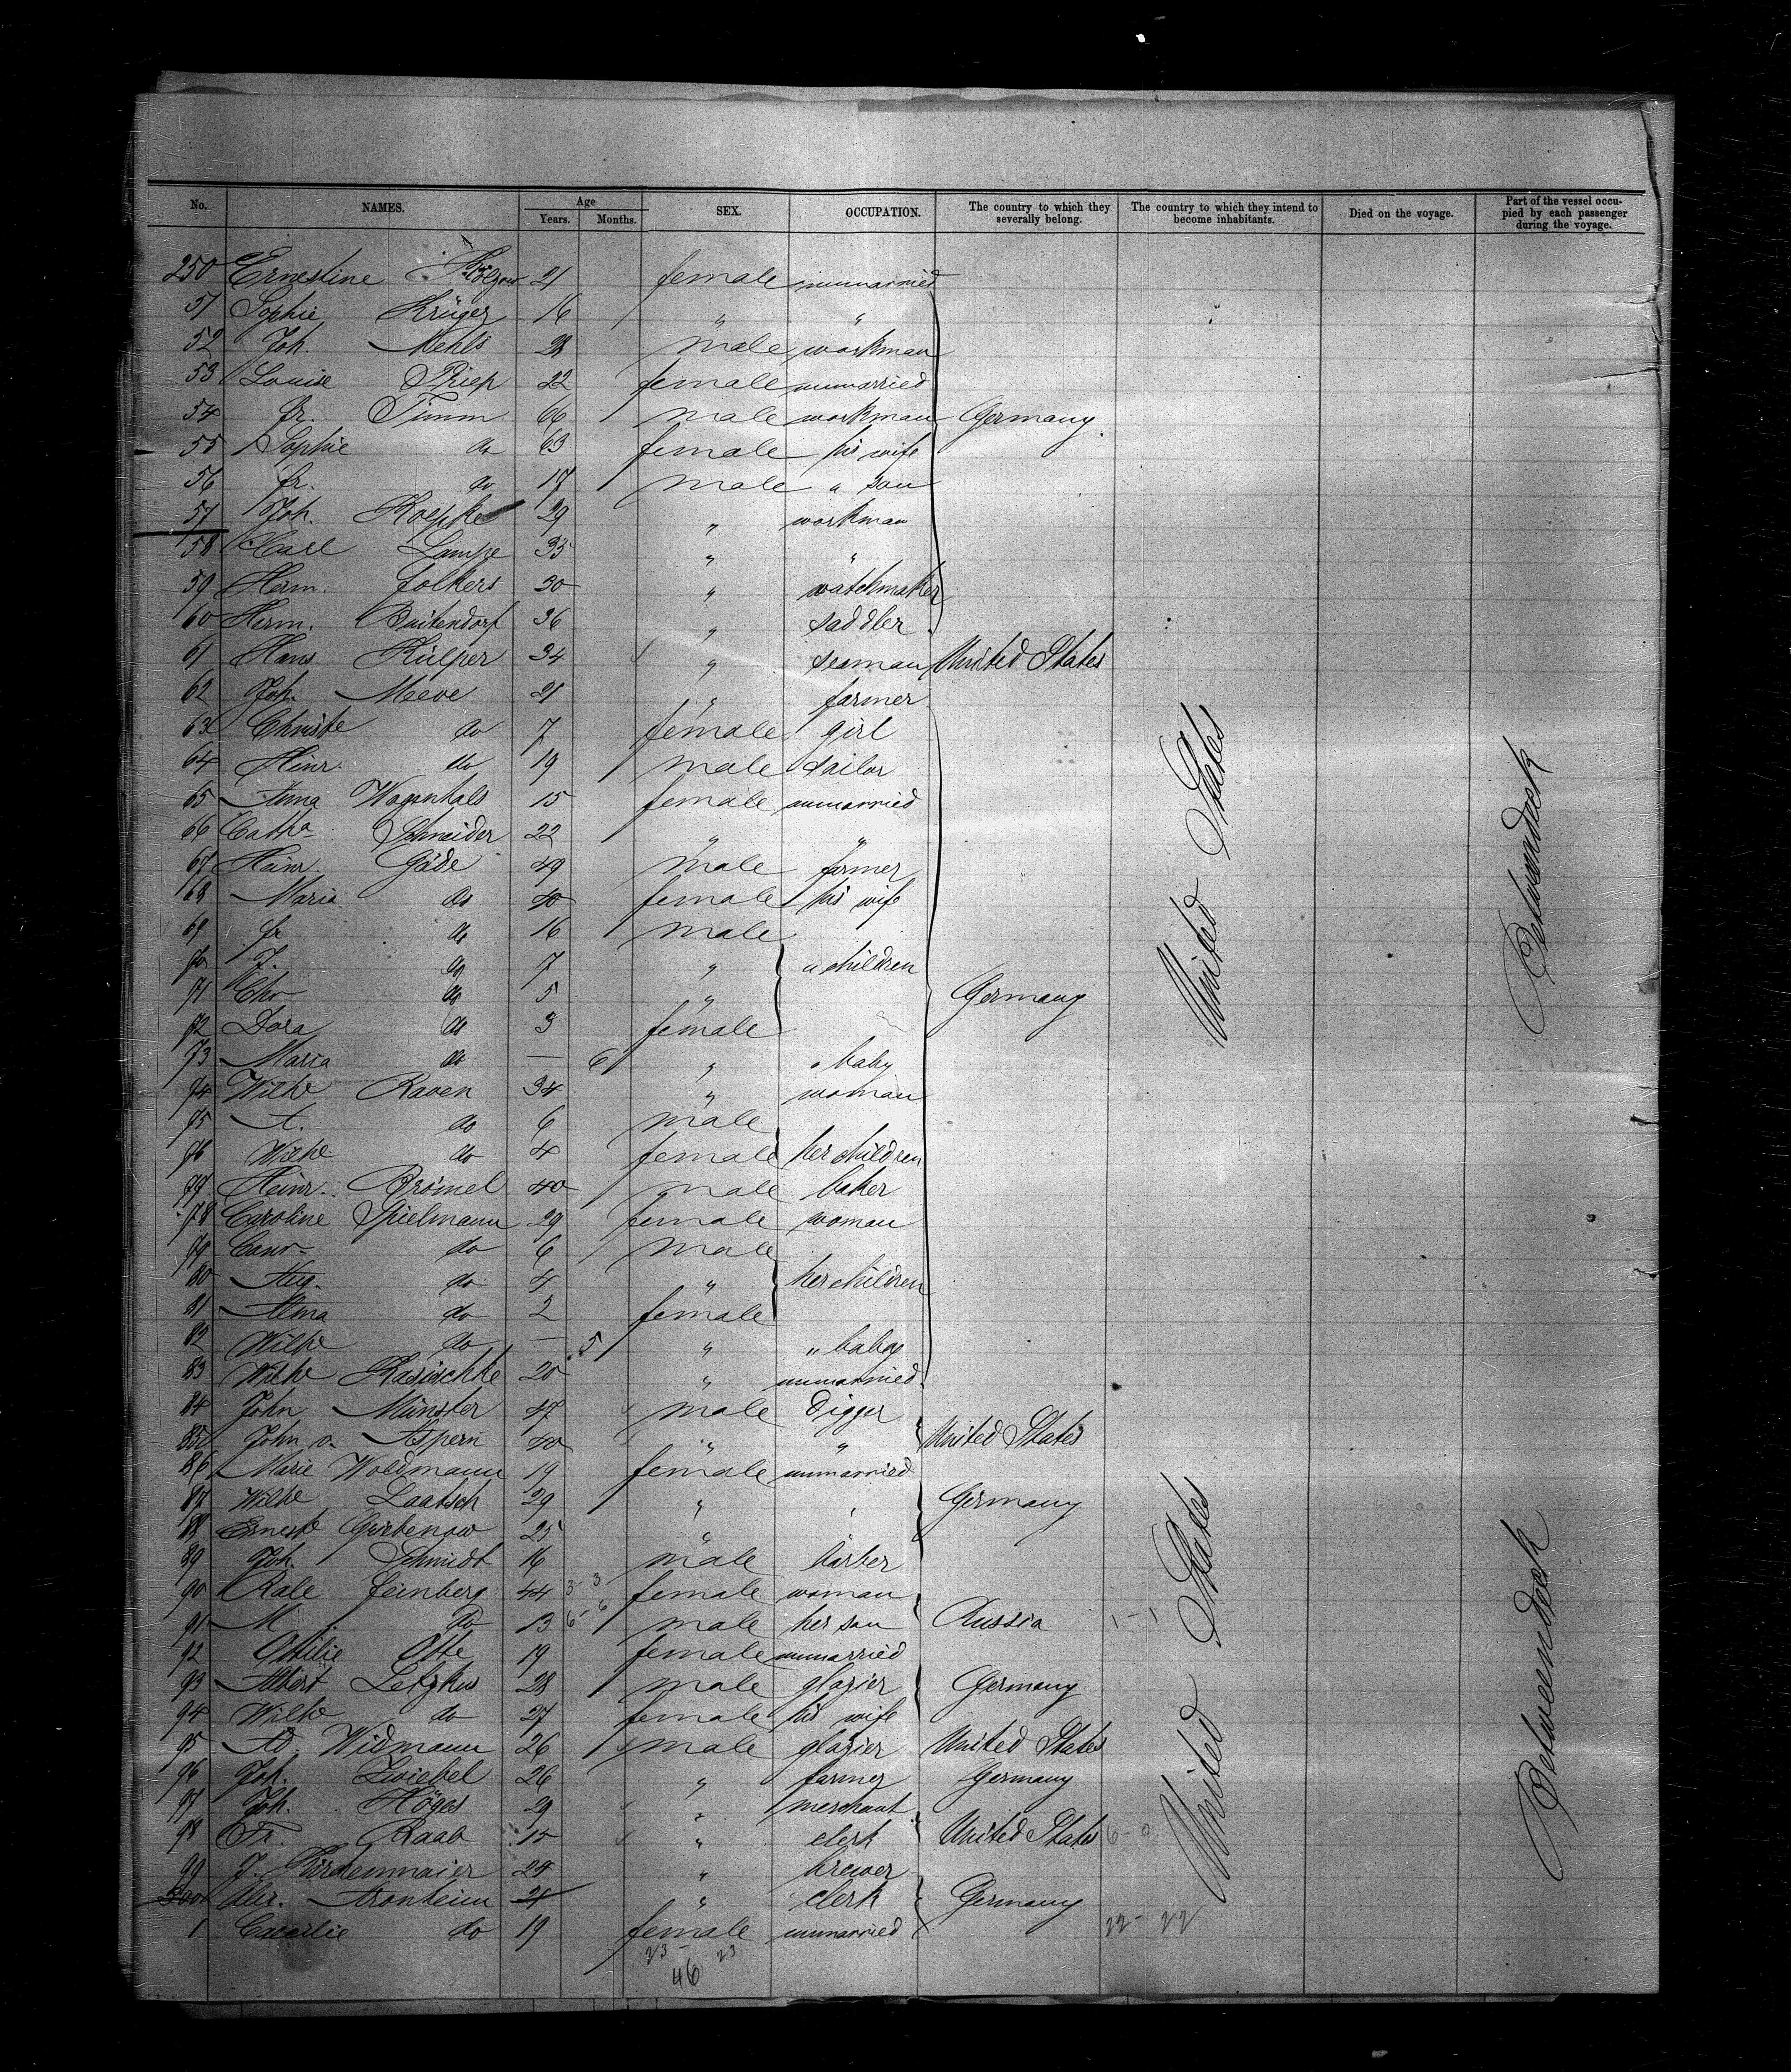 No. NAMES. Age Years. Months. SEX. OCCUPATION. The country to which they severally belong. The country to which they intend to become inhabitants. Died on the voyage. Part of the vessel occupied by each passenger during the voyage.
250 Ernestine 21 female unmarried
51 Sophie Krüger 16 " "
52 Joh. Mehls 28 male workman
53 Louise Priep 22 female unmarried
54 Fr. Timm 66 male workman Germany
55 Sophie do 63 female his wife
56 Fr. do 17 male " son
57 Joh. Koepke 29 " workman
58 Carl Lampe 35 " "
59 Herm. Folkers 30 " watchmaker
60 Herm. Buitendorf 36 " saddler
61 Hans Külper 34 " seaman United States
62 Joh. Meeve 21 " farmer
63 Christe do 7 female girl
64 Hinr. do 19 male sailor
65 Anna Wagenhals 15 female unmarried
66 Catha Schneider 22 " "
67 Heinr. Gäde 49 male farmer
68 Maria do 40 female his wife
69 Fr do 16 male
70 J. do 7 " " children
71 Chr do 5 " Germany
72 Dora do 3 female
73 Maria do — 6 " " baby
74 Wilhe Raven 34 " woman
75 A. do 6 male
76 Wilhe do 4 female her children
77 Heinr. Brömel 40 male baker
78 Caroline Spielmann 29 female woman
79 Conr do 6 male
80 Aug. do 4 " her children
81 Alma do 2 female
82 Wilhe do — 5 " " baby
83 Wilhe Rasischke 20 " unmarried
84 John Münster 47 male digger
85 John v. Aspern 40 " " United States
86 Marie Woldmann 19 female unmarried
87 Wilhe Laatsch 29 " " Germany
88 Erneste Gurbenow 25 "
89 Joh. Schmidt 16 male barber
90 Rale Feinberg 44 3 - 3 female woman
91 M do 13 6 - 6 male her son Russia 1 - 1
92 Ottilie Otte 19 female unmarried
93 Albert Letzkus 28 male glazier Germany
94 Wilhe do 27 female his wife
95 Ad. Widmann 26 male glazier United States
96 Joh. Zwiebel 26 " farmer Germany
97 Joh. Höges 29 " merchant
98 Fr. Raab 15 " clerk United States 6 - 0
99 J. Fürdenmaier 24 " brewer
300 Abr. Aronheim 21 " clerk Germany
1 Caecilie do 19 female unmarried 22 - 22
23 - 23
46
United States
Betweendeck
United States
Betweendeck